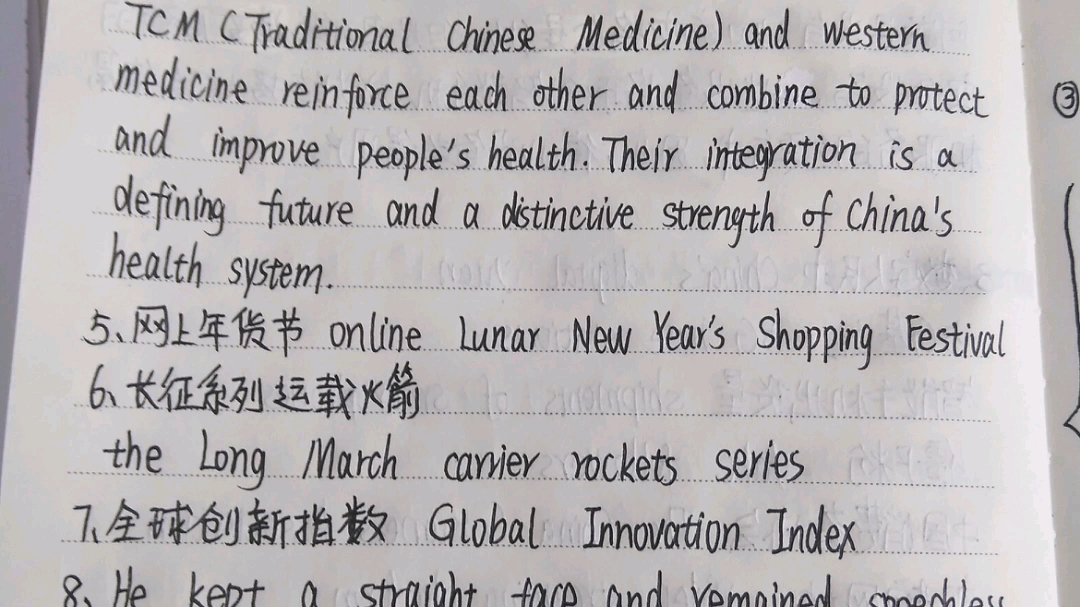 TCM (Traditional Chinese Medicine) and western
medicine reinforce each other and combine to protect
and improve people's health. Their integration is a
defining future and a distinctive strength of China's
health system.
5、网上年货节 online Lunar New Year's Shopping Festival
6、长征系列运载火箭
the Long March carrier rockets series
7、全球创新指数 Global Innovation Index
8、He kept a straight face and remained speechless
③